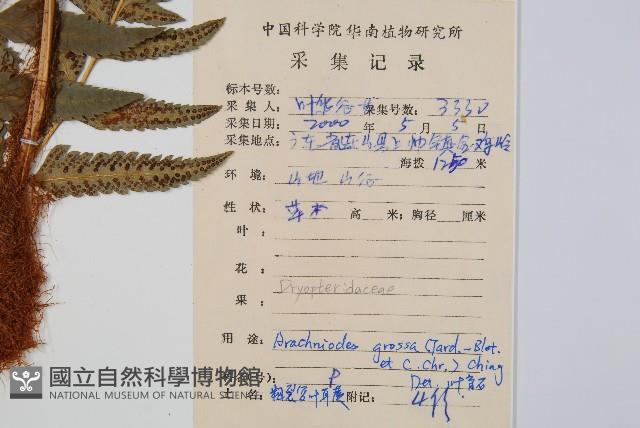 中国科学院华南植物研究所
采集记录
标本号数：
采集人： 叶华谷 采集号数： 3330
采集日期： 2000 年 5 月 5 日
采集地点：
海拔 1250 米
环境： 山地
性状： 草本 高 米；胸径 厘米
叶：
花：
Dryopteridaceae
果：
用途： Arachniodes grossa (Tard.-Blot.
et C.Chr.) Ching
P Det. 叶育石
名： 粗裂复叶耳蕨 附记：
國立自然科學博物館
NATIONAL MUSEUM OF NATURAL SCIENCE